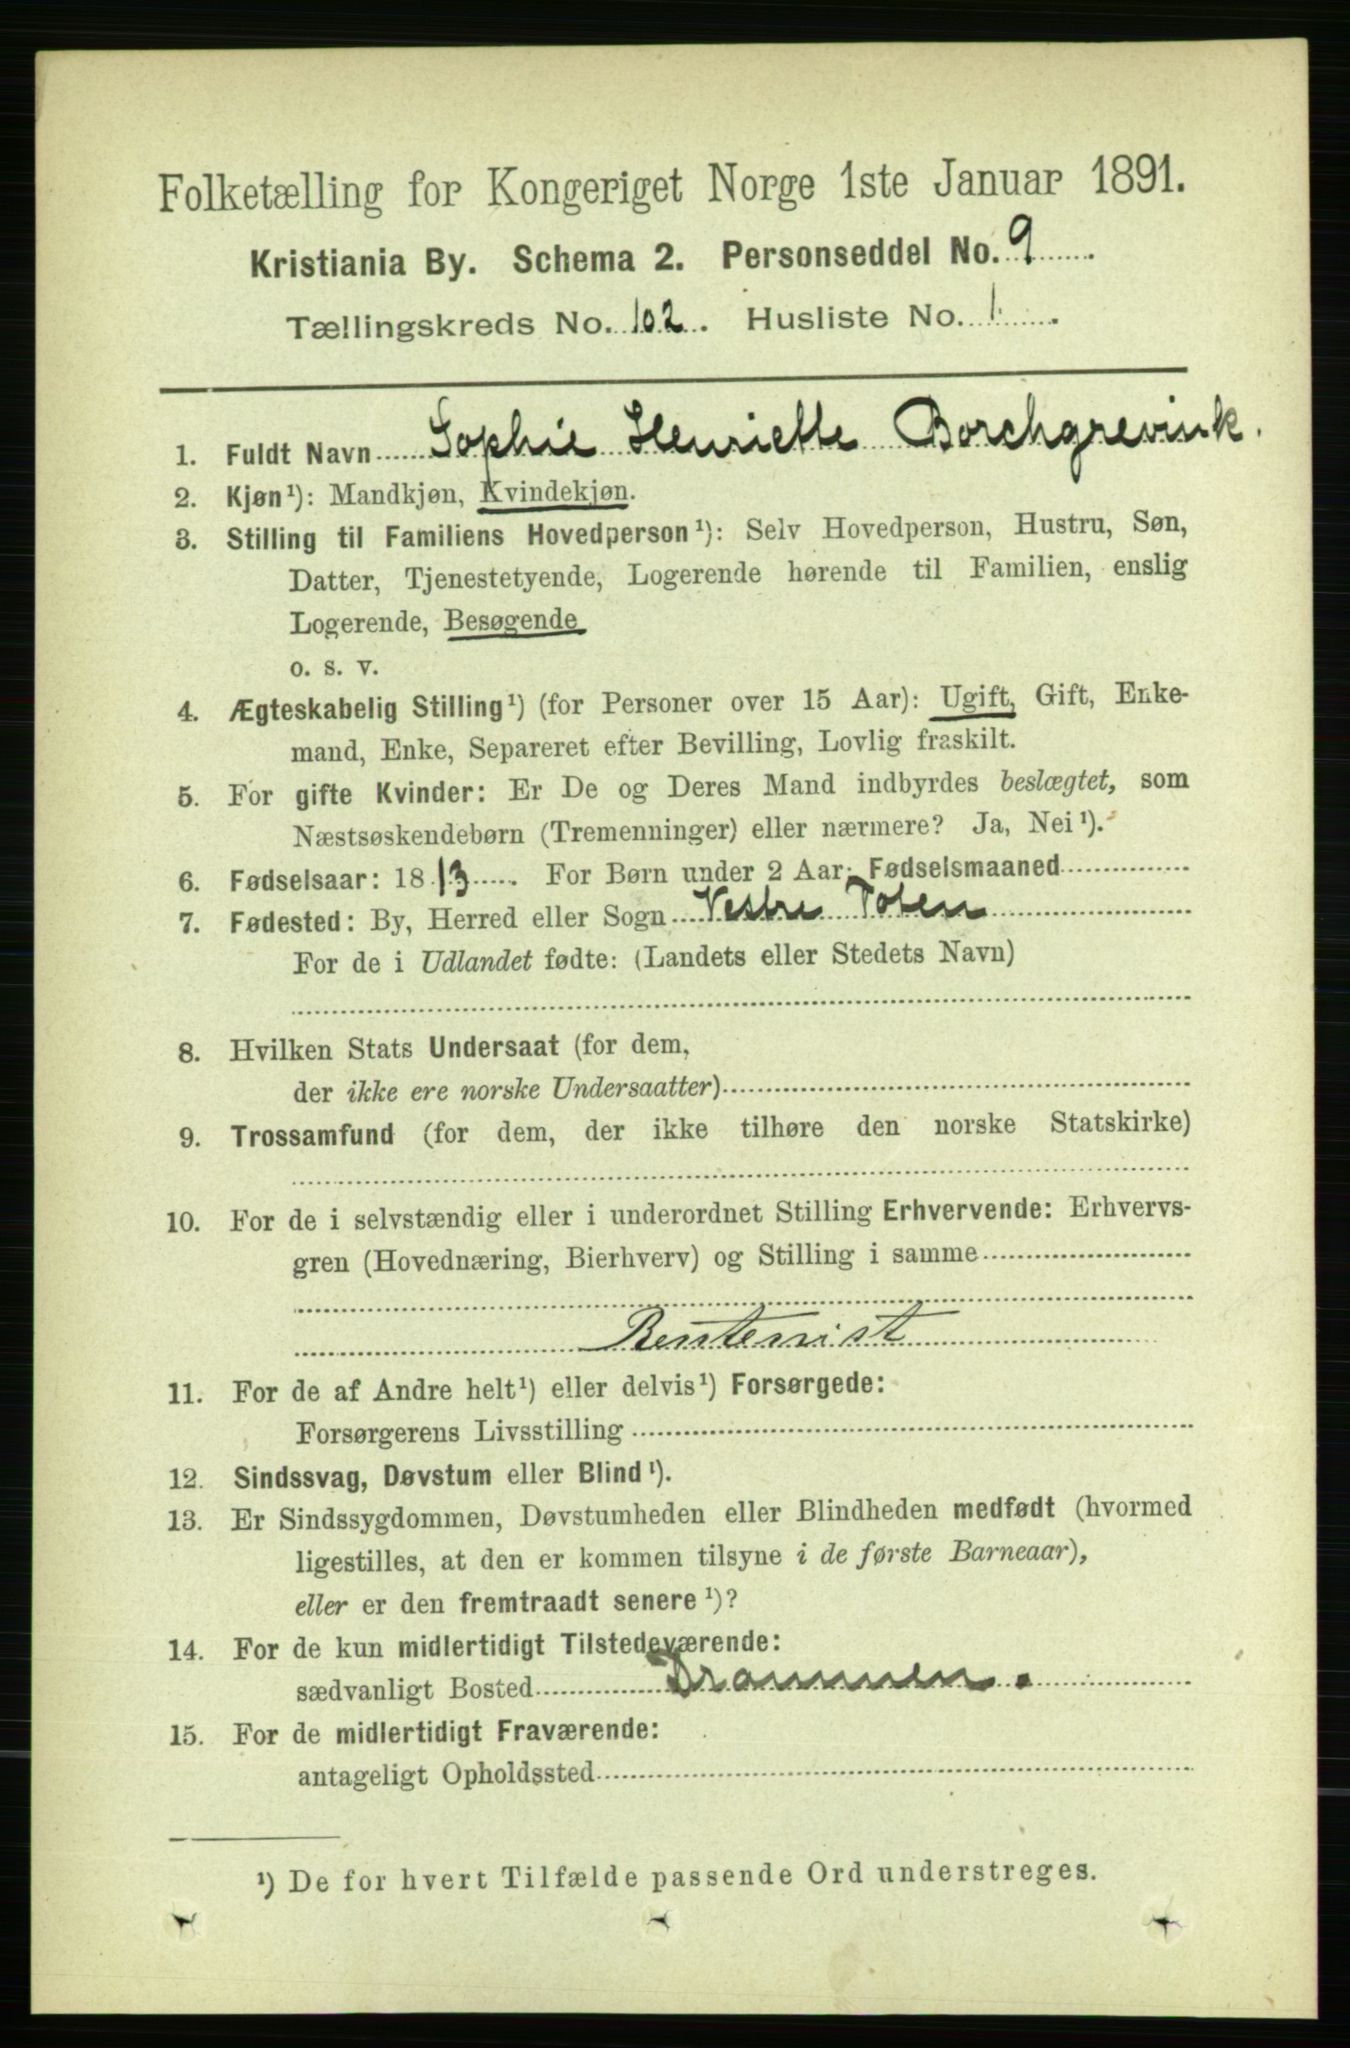 Folketælling for Kongeriget Norge 1ste Januar 1891.
Kristiania By. Schema 2. Personseddel No. 9
Tællingskreds No. 102. Husliste No. 1.
1. Fuldt Navn Sophie Henriette Borchgrevink.
2. Kjøn¹): Mandkjøn, Kvindekjøn.
3. Stilling til Familiens Hovedperson¹): Selv Hovedperson, Hustru, Søn,
Datter, Tjenestetyende, Logerende hørende til Familien, enslig
Logerende, Besøgende
o. s. v.
4. Ægteskabelig Stilling¹) (for Personer over 15 Aar): Ugift, Gift, Enke-
mand, Enke, Separeret efter Bevilling, Lovlig fraskilt.
5. For gifte Kvinder: Er De og Deres Mand indbyrdes beslægtet, som
Næstsøskendebørn (Tremenninger) eller nærmere? Ja, Nei¹).
6. Fødselsaar: 1813. For Børn under 2 Aar: Fødselsmaaned
7. Fødested: By, Herred eller Sogn Vestre Toten
For de i Udlandet fødte: (Landets eller Stedets Navn)
8. Hvilken Stats Undersaat (for dem,
der ikke ere norske Undersaatter)
9. Trossamfund (for dem, der ikke tilhøre den norske Statskirke)
10. For de i selvstændig eller i underordnet Stilling Erhvervende: Erhvervs-
gren (Hovednæring, Bierhverv) og Stilling i samme
Rentenist
11. For de af Andre helt¹) eller delvis¹) Forsørgede:
Forsørgerens Livsstilling
12. Sindssvag, Døvstum eller Blind¹).
13. Er Sindssygdommen, Døvstumheden eller Blindheden medfødt (hvormed
ligestilles, at den er kommen tilsyne i de første Barneaar),
eller er den fremtraadt senere¹)?
14. For de kun midlertidigt Tilstedeværende:
sædvanligt Bosted Drammen.
15. For de midlertidigt Fraværende:
antageligt Opholdssted
¹) De for hvert Tilfælde passende Ord understreges.